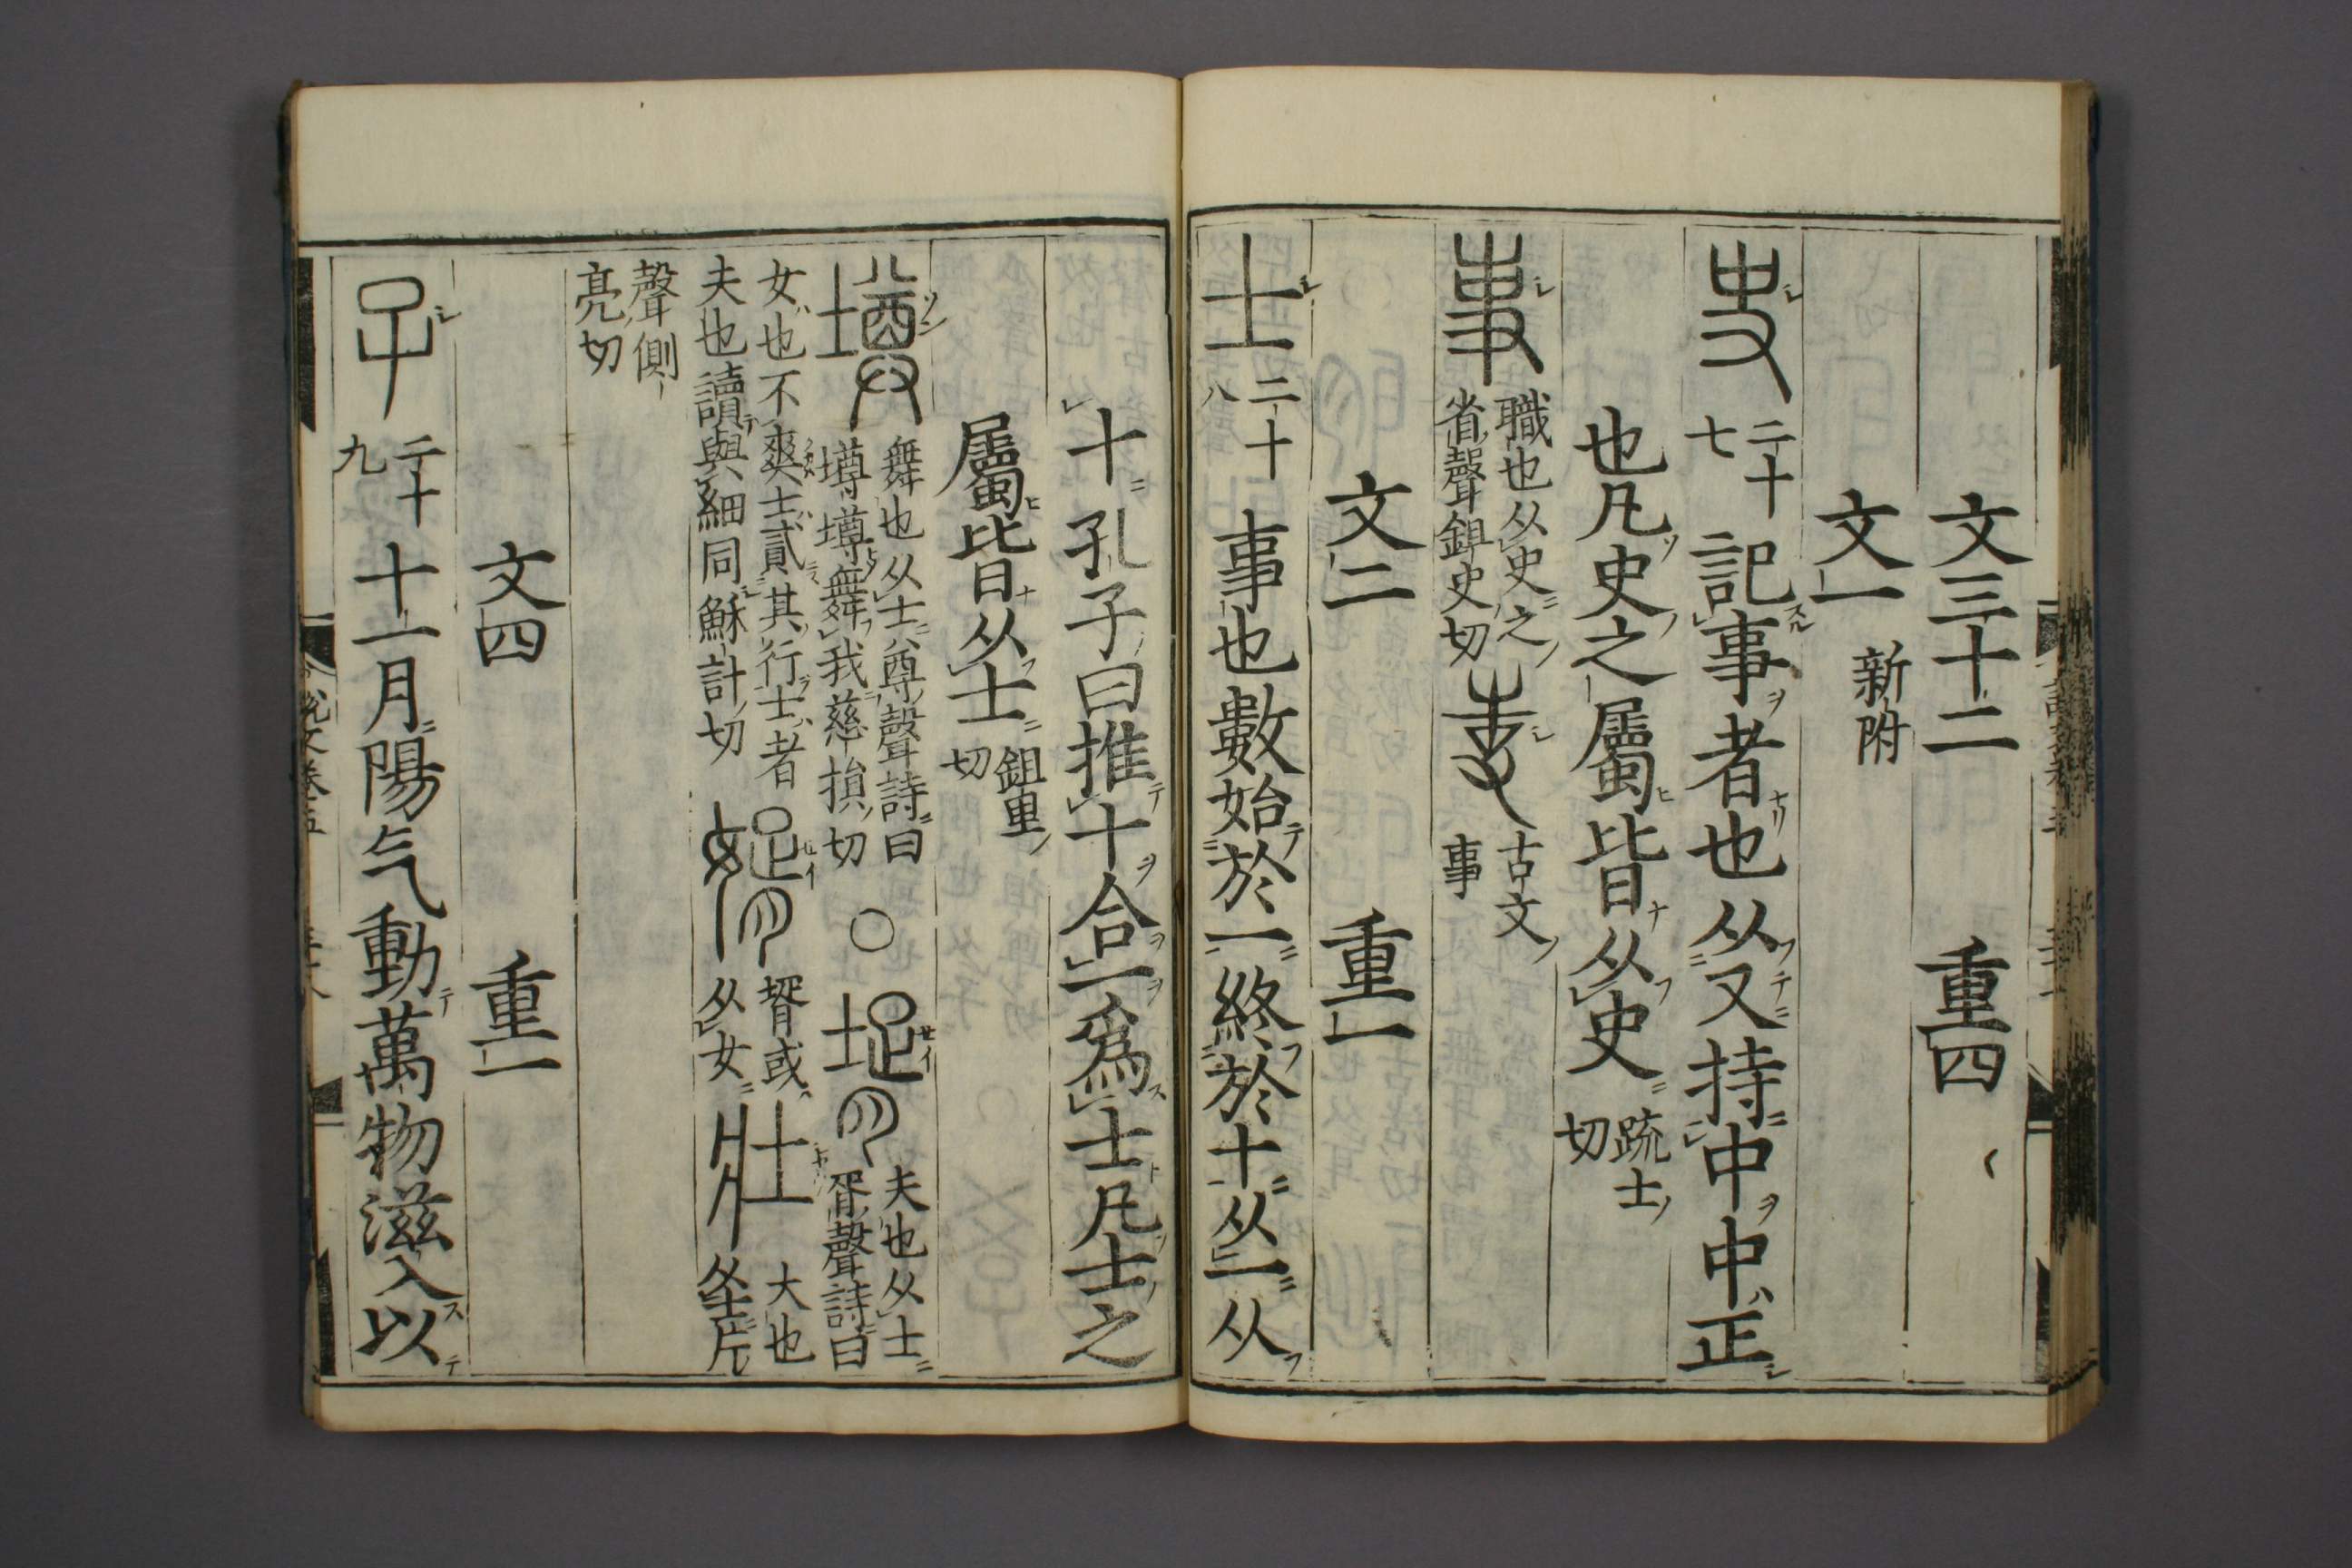 文三十二 重四
文一 新附
史 二十七 記事者也从又持中中正
也凡史之屬皆从史 疏士切
事 職也从史之省聲鉏史切 古文事
文二 重一
士 二十八 事也數始於一終於十从一从
十孔子曰推十合一爲士凡士之
屬皆从士 鉏里切
壿 舞也从士尊聲詩曰壿壿舞我慈損切 ○ 壻 夫也从士胥聲詩曰
女也不爽士貳其行士者夫也讀與細同穌計切 婿 壻或从女 壯 大也从士爿
聲側亮切
文四 重一
子 二十九 十一月陽气動萬物滋入以